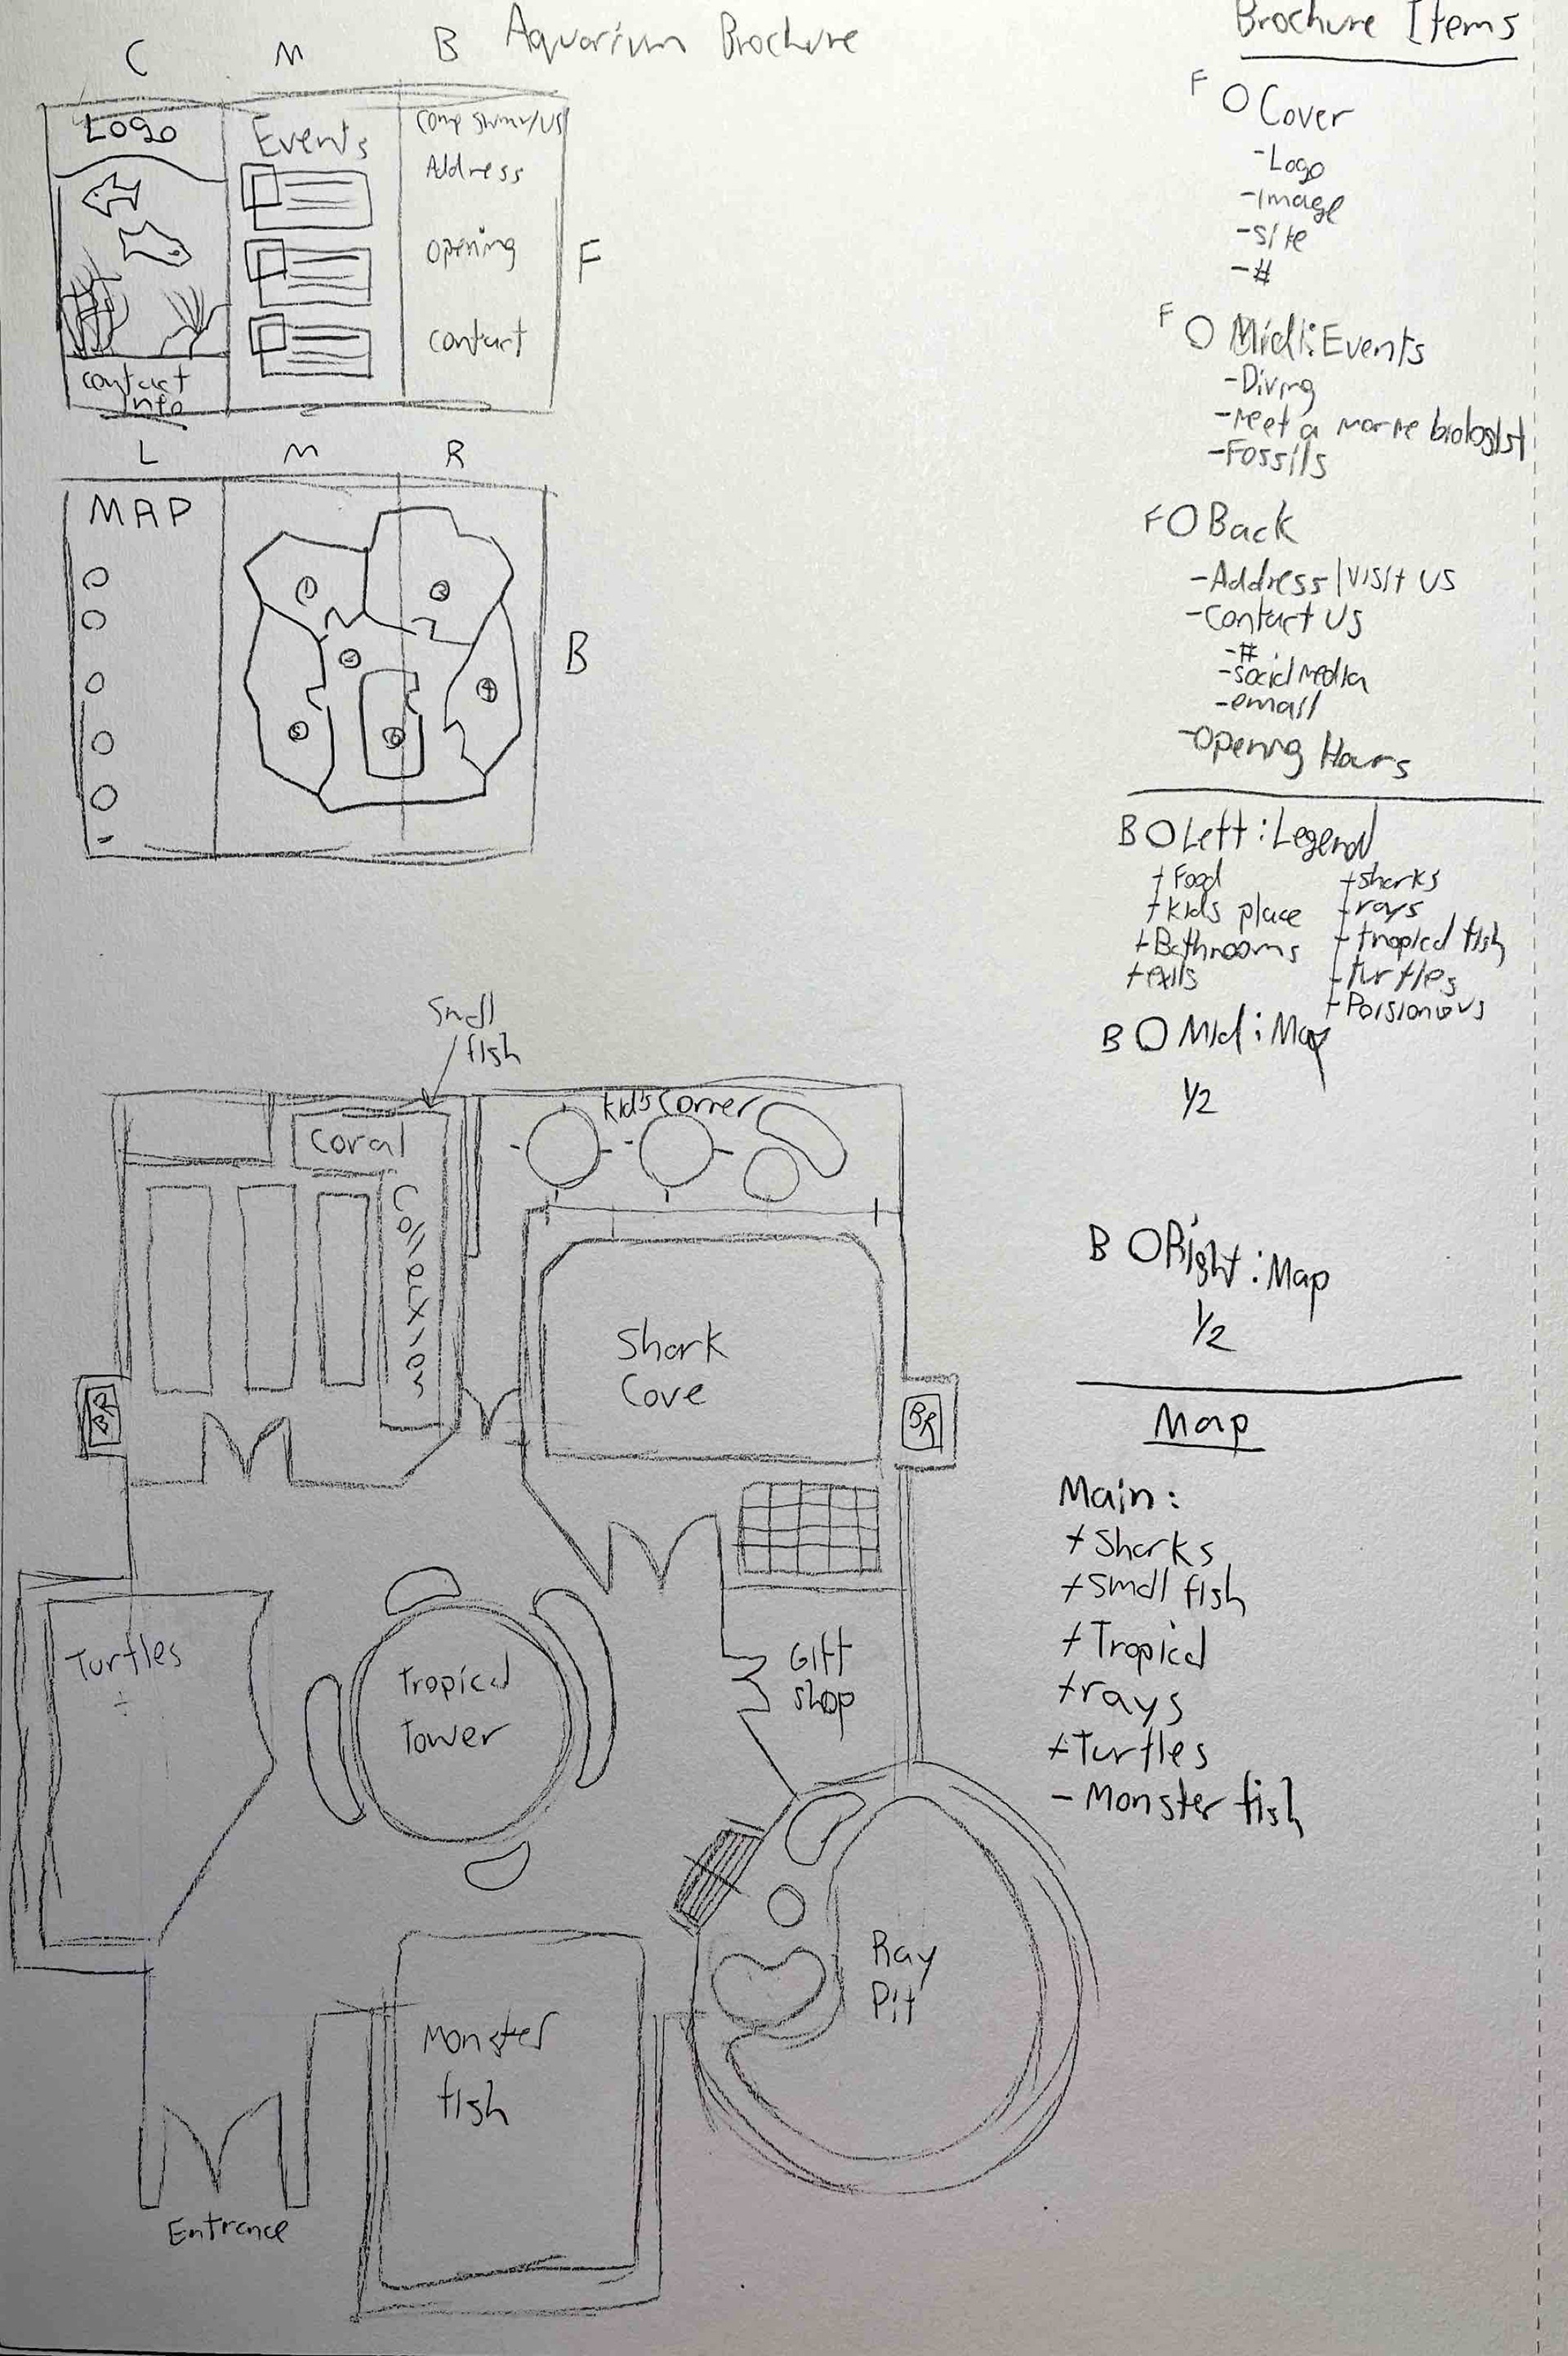 Aquarium Brochure
C M B
Logo
Events
Address
opening
contact
contact
info
F
L M R
MAP
1
2
3
4
5
6
B
Small
fish
Coral
Collection
Kid's Corner
Shark
Cove
BR
BR
Turtles
Tropical
Tower
Gift
shop
Ray
Pit
Monster
fish
Entrance
Brochure Items
F O Cover
-Logo
-image
-site
-#
F O Mid: Events
-Diving
-meet a marine biologist
-Fossils
F O Back
-Address/visit us
-contact us
-#
-social media
-email
-Opening Hours
B O Left: Legend
+Food
+kids place
+Bathrooms
+exits
+sharks
+rays
+tropical fish
-turtles
+Poisionous
B O Mid: Map
1/2
B O Right: Map
1/2
Map
Main:
+Sharks
+small fish
+Tropical
+rays
+Turtles
- Monster fish